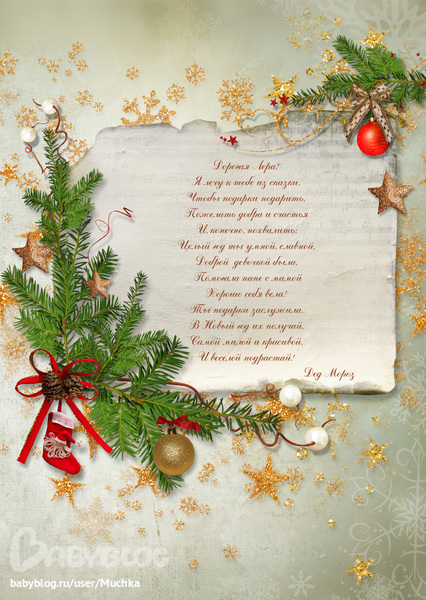 Дорогая Лера!
Я лечу к тебе из сказки,
Чтобы подарки подарить,
Пожелать добра и счастья
И, конечно, похвалить;
Целый год ты умной, славной,
Доброй девочкой была,
Помогала папе с мамой
Хорошо себя вела!
Ты подарки заслужила,
В Новый год их получай,
Самой милой и красивой,
И веселой подрастай!
Дед Мороз
BABYBLOG
babyblog.ru/user/Muchka